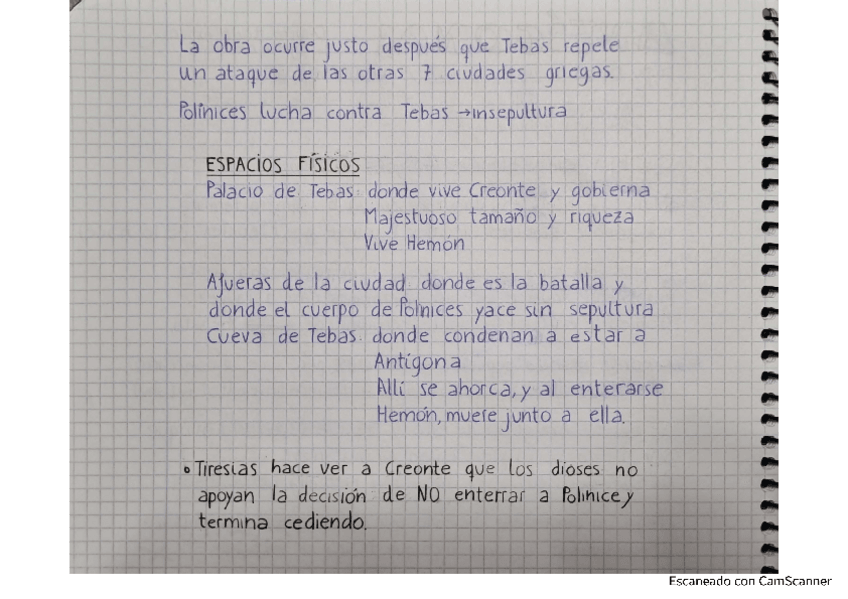 La obra ocurre justo después que Tebas repele
un ataque de las otras 7 ciudades griegas.
Polínices lucha contra Tebas →insepultura
ESPACIOS FÍSICOS
Palacio de Tebas: donde vive Creonte y gobierna
Majestuoso tamaño y riqueza
Vive Hemón
Afueras de la ciudad donde es la batalla y
donde el cuerpo de Polnices yace sin sepultura
Cueva de Tebas: donde condenan a estar a
Antígona
Allí se ahorca, y al enterarse
Hemón, muere junto a ella.
• Tiresias hace ver a Creonte que los dioses no
apoyan la decisión de NO enterrar a Polinice y
termina cediendo.
Escaneado con CamScanner